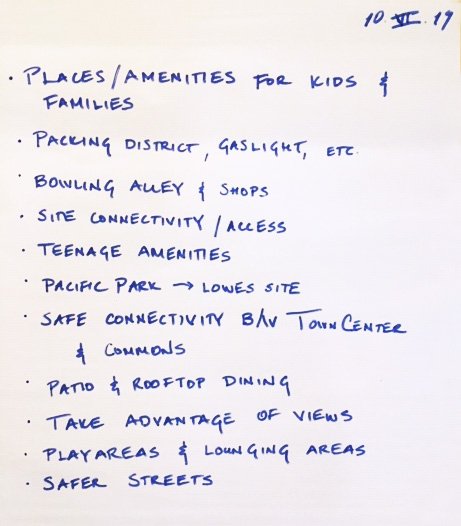 10 VI. 19
• PLACES/AMENITIES FOR KIDS &
FAMILIES
• PACKING DISTRICT, GASLIGHT, ETC.
• BOWLING ALLEY & SHOPS
• SITE CONNECTIVITY/ACCESS
• TEENAGE AMENITIES
• PACIFIC PARK → LOWES SITE
• SAFE CONNECTIVITY B/W TOWN CENTER
& COMMONS
• PATIO & ROOFTOP DINING
• TAKE ADVANTAGE OF VIEWS
• PLAY AREAS & LOUNGING AREAS
• SAFER STREETS